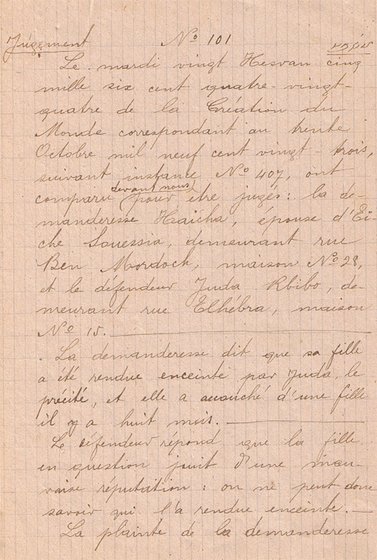 Jugement No 101
Le mardi vingt Hesvan cinq
mille six cent quatre-vingt-
quatre de la Création du
Monde correspondant au trente
Octobre mil neuf cent vingt-trois,
suivant instance No 407, ont
comparu devant nous pour être jugés: la de-
manderesse Haicha, épouse d'Ei-
che Souessia, demeurant rue
Ben Mordock, maison No 28,
et le défendeur Juda Rbibo, de-
meurant rue Elhébra, maison
No 15.
La demanderesse dit que sa fille
a été rendue enceinte par Juda, le
précité, et elle a accouché d'une fille
il y a huit mois.
Le défendeur répond que la fille
en question jouit d'une mau-
vaise réputation: on ne peut donc
savoir qui l'a rendue enceinte.
La plainte de la demanderesse